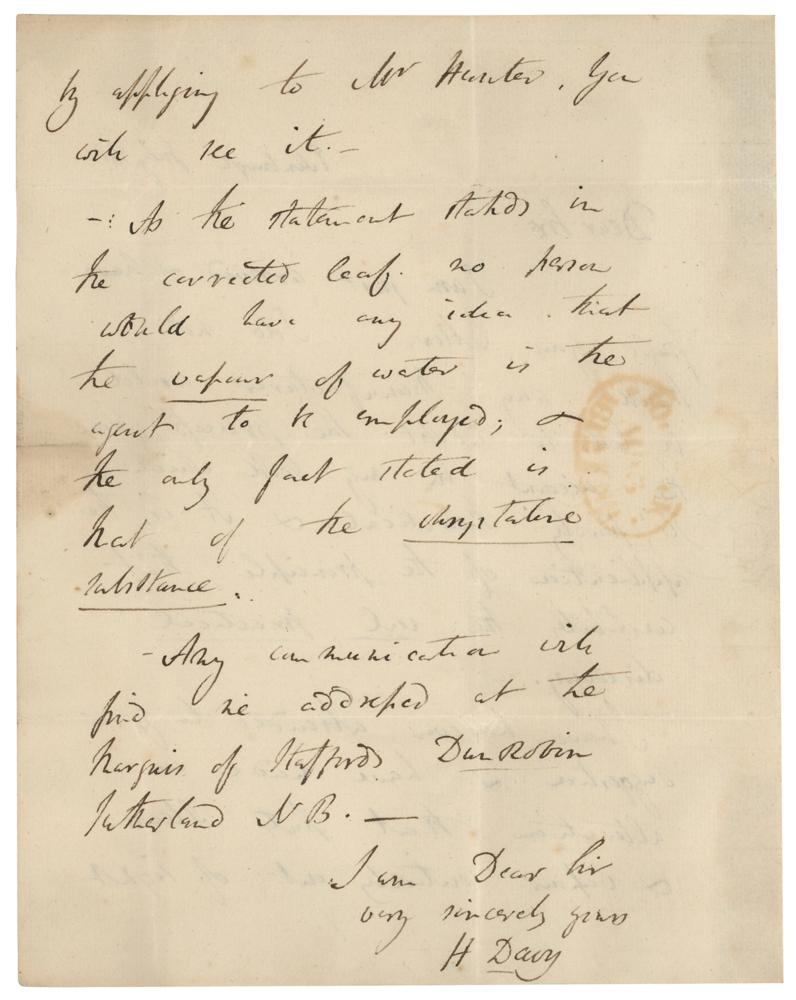 by applying to Mr Hunter, You
will see it. —
—: As the statement stands in
the corrected leaf. no person
would have any idea that
the vapour of water is the
agent to be employed; &
the only fact stated is
that of the absorptative
substance.
- Any communication will
find me addressed at the
Marquis of Staffords Dun Robin
Sutherland N B. —
I am Dear Sir
very sincerely yours
H Davy